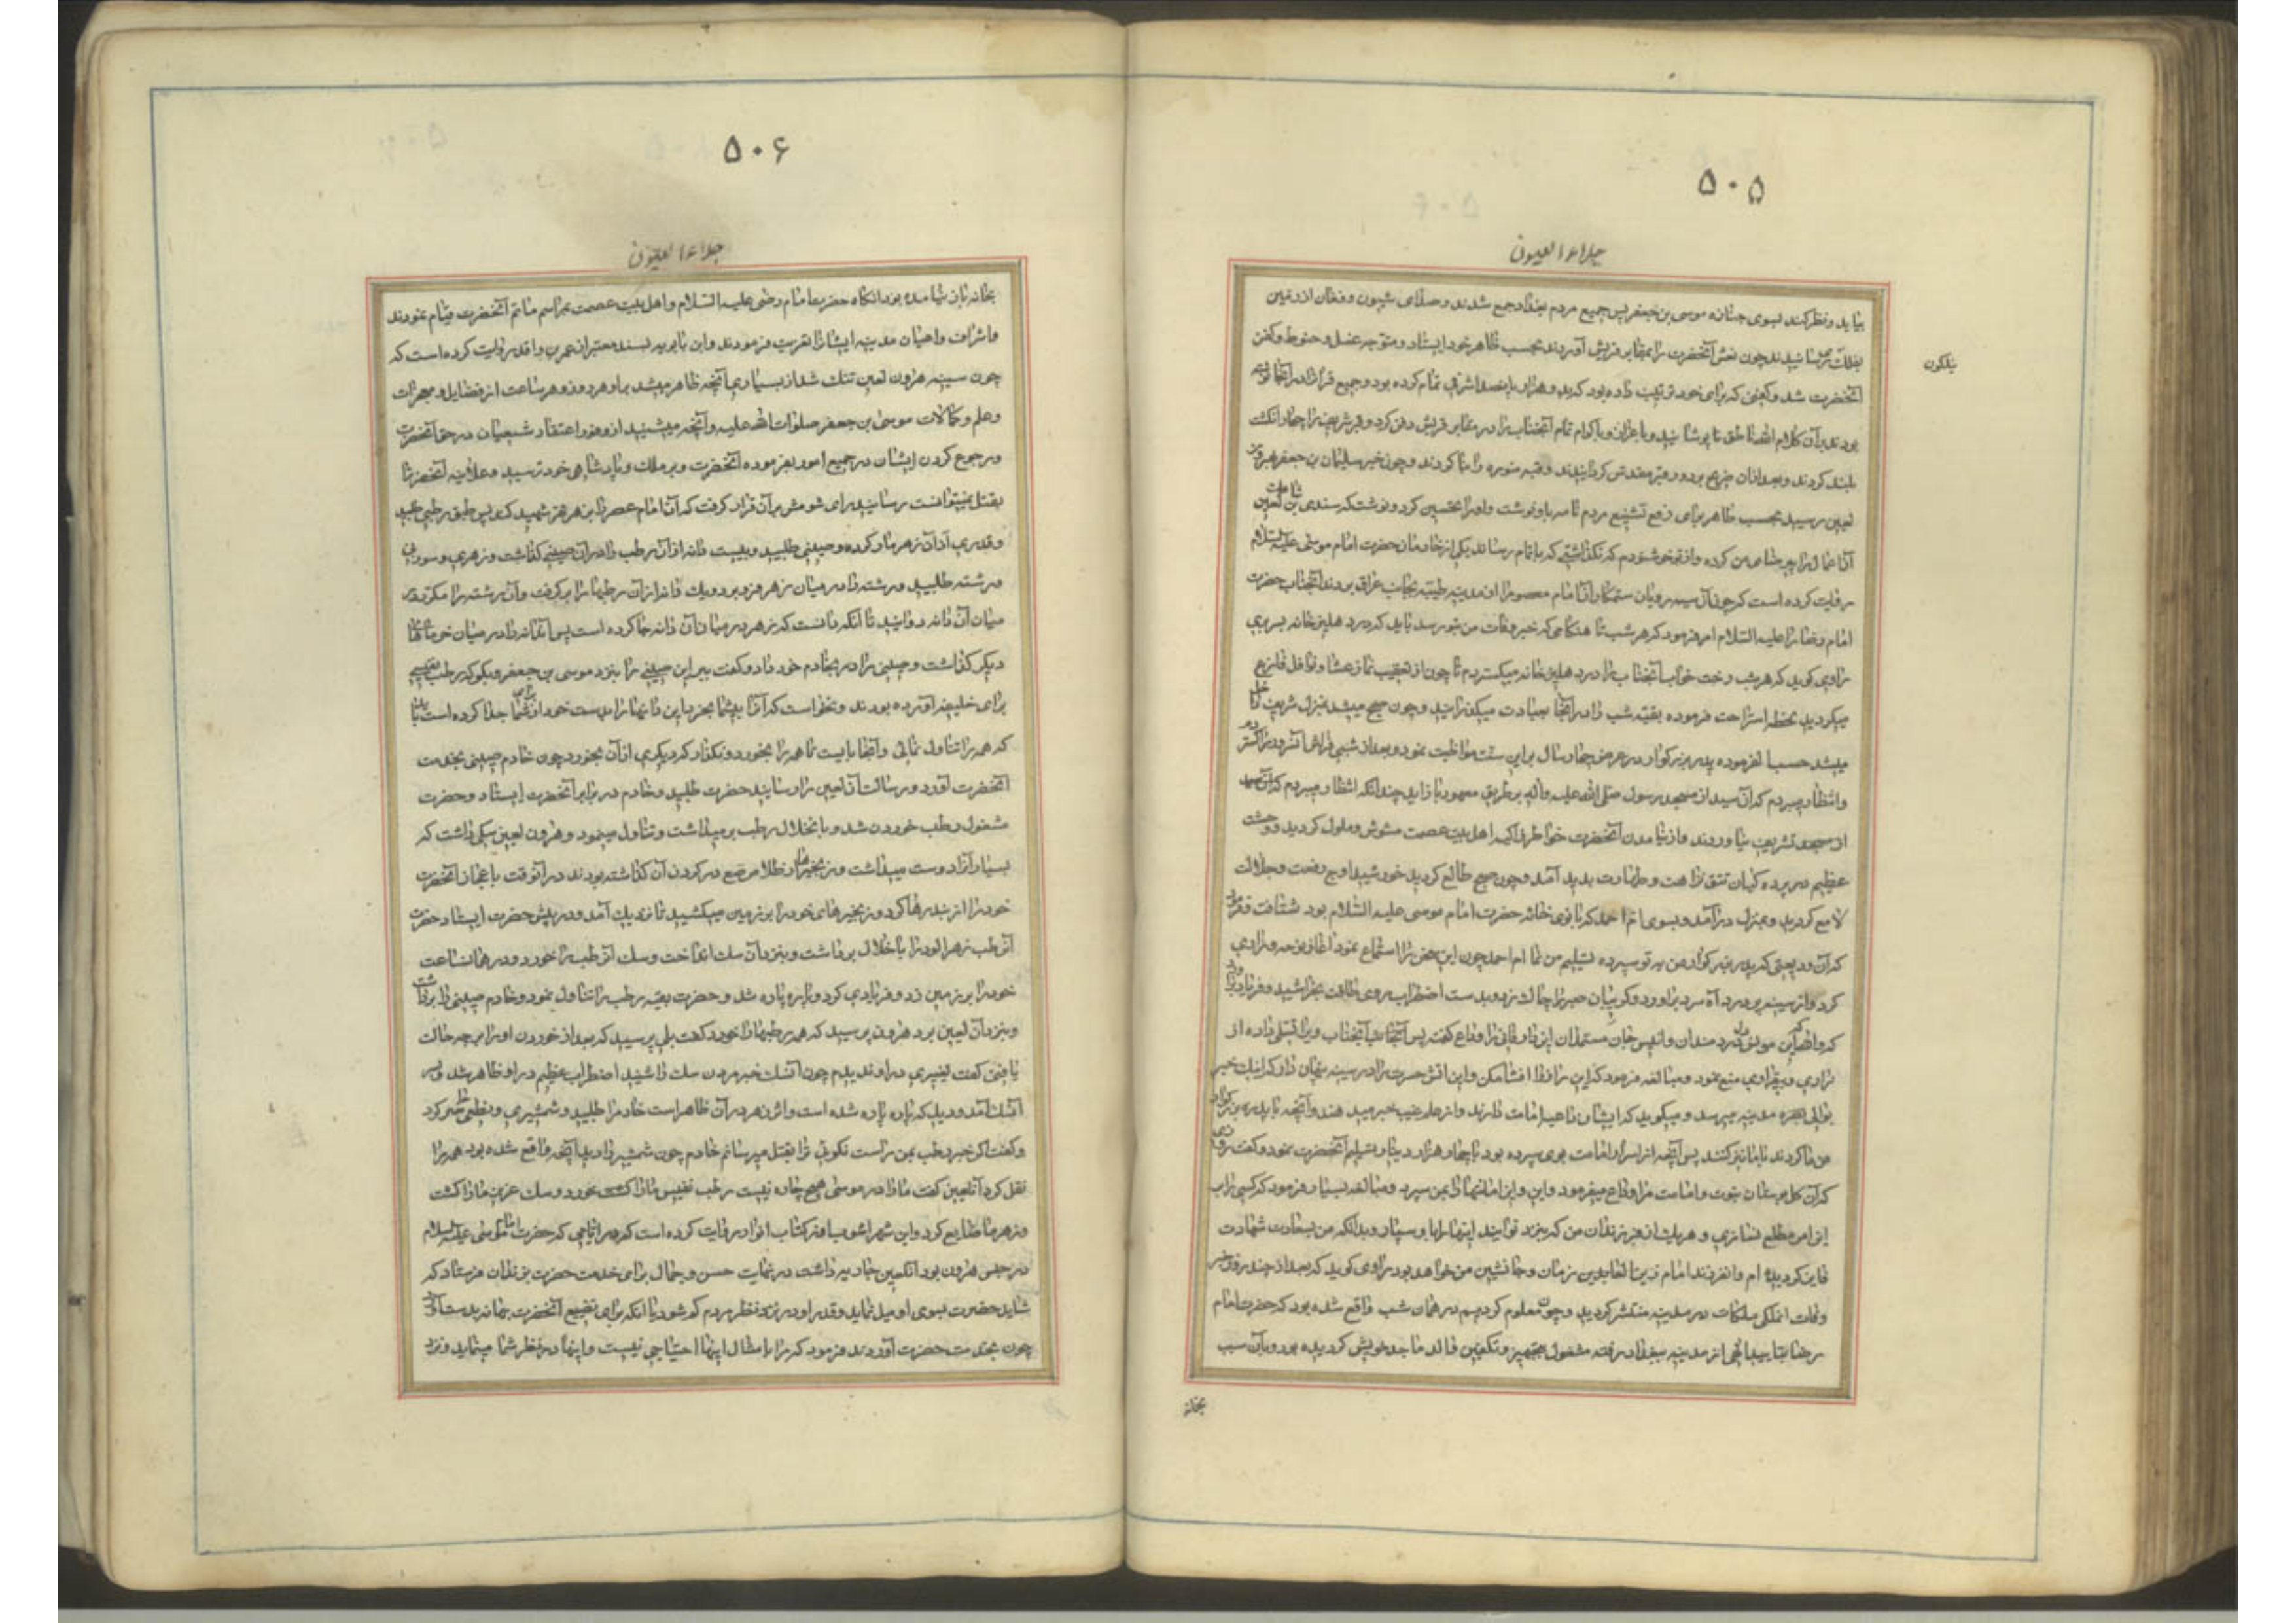 ۵۰۵
جلاء العیون
بیاید و نظر کنند بسوی جنازه موسی بن جعفر پس جمیع مردم بغداد جمع شدند و صدای شیون و فغان از زمین
بفلک رسانیدند چون نعش آنحضرت را بمقابر قریش آوردند بحسب ظاهر خود ایستاد و متوجه غسل و حنوط و کفن
نیلکون
آنحضرت شد و کفنی که برای خود ترتیب داده بود که بدو هزار و پانصد اشرفی تمام کرده بود و جمیع قرانرا در آنجا نوشته
بودند بر آن کلام الله ناطق پوشانید و باعزاز و اکرام تمام آنجناب را در مقابر قریش دفن کرد و قبر شریفرا چهار انکشت
بلند کردند و بعد از آن ضریح بر دور قبر مقدس کردانیدند و قبه منوره را بنا کردند و چون خبر سلیمان بن جعفر بهرون
لعین رسید بحسب ظاهر برای رفع تشنیع مردم نامه باو نوشت و او را تحسین کرد و نوشت که سندی بن شاهک لعین
آن اعمال را بی رضای من کرده و از تو خوشنودم که نکذاشتی که باتمام رساند یکی از خادمان حضرت امام موسی علیه السلام
روایت کرده است که چون آن سیه رویان ستمکار آن امام معصوم را از مدینه طیبه بجانب عراق بردند آنجناب حضرت
امام رضا را علیه السلام امر فرمود که هر شب تا هنکامی که خبر وفات من بتو رسد باید که در دهلیز خانه بسر بری
راوی کوید که هر شب رخت خواب آنجناب را در دهلیز خانه میکستردم تا چون از تعقیب نماز عشا و نوافل فارغ
میکردید لحظه استراحت فرموده بقیه شب را در آنجا بعبادت میکذرانید و چون صبح میشد بمنزل شریف داخل
میشد حسب الفرموده پدر بزرکوار در عرض چهار سال براین سنت مواظبت نمود و بعد از شبی فراش آنسرور را کستردم
و انتظار میبردم که آن سید از مسجد رسول صلی الله علیه و آله بر طریق معهود باز اید چندانکه انتظار میبردم که آن سید
از مسجد تشریف نیاوردند و از نیامدن آنحضرت خواطر زاکیه اهل بیت عصمت مشوش و ملول کردید و وحشت
عظیم در پرده کیان تتق نزاهت و طهارت بدید آمد و چون صبح طالع کردید خورشید اوج رفعت و جلالت
لامع کردید و بمنزل درآمد و بسوی ام احمد که بانوی خانه حضرت امام موسی علیه السلام بود شتافت و فرمود
که آن ودیعتی که پدر بزرکوار من به تو سپرده تسلیم من نما ام احمد چون این سخن را استماع نمود آغاز نوحه و زاری
کرد و از سینه پردرد آه سرد برآورد و کریبان صبر را چاک زد و بدست اضطراب روی طاقت بخراشید و فریاد برآورد
که والله آن مونس دل دردمندان و انیس جان مستمندان این دار فانی را وداع کفت پس آنجناب ویرا تسلی داده از
زاری و بیقراری منع نمود و مبالغه فرمود که این راز را افشا مکن و این آتش حسرت را در سینه پنهان دار که اینک خبر
بوالی مدینه میرسد و میکوید که ایشان داعیه امامت دارند و از علم غیب خبر میدهند و آنچه با پدر بزرکوار
من کردند با ما نیز کنند پس آنچه از اسرار امامت بوی سپرده بود با چهار هزار دینار تسلیم آنحضرت نمود و کفت روزی
که آن کل بوستان نبوت و امامت مرا وداع میفرمود این امانتها را بمن سپرد و مبالغه بسیار فرمود که کسی را به
این امر مطلع نسازی و هریک از فرزندان من که بنزد تو آیند اینها را باو بسپار و بدانکه من بسعادت شهادت
فایز کردیده ام و آن فرزند امام زمان و جانشین من خواهد بود راوی کوید که بعد از چند روز خبر
وفات آن ملکی ملکات در مدینه منتشر کردید و چون معلوم کردیم در همان شب واقع شده بود که حضرت امام
رضا بتایید الهی از مدینه ببغداد رفته مشغول تجهیز و تکفین والد ماجد خویش کردیده بود و بآن سبب
بخانه
۵۰۶
جلاء العیون
بخانه باز نیامده بود انکاه حضرت امام رضی علیه السلام و اهل بیت عصمت بمراسم ماتم آنحضرت قیام نمودند
و اشراف و اعیان مدینه ایشانرا تعزیت فرمودند و ابن بابویه بسند معتبر از عمر بن واقد روایت کرده است که
چون سینه هرون لعین تنک شد از بسیاری آنچه ظاهر میشد بر او هر روز و هر ساعت از فضایل و معجزات
و علم و کمالات موسی بن جعفر صلوات الله علیه و آنچه میشنید از وفور اعتقاد شیعیان در حق آنحضرت
و رجوع کردن ایشان در جمیع امور بفرموده آنحضرت و بر ملک و پادشاهی خود ترسید و علانیه آنحضرترا
بقتل نمیتوانست رسانید رای شومش بر آن قرار کرفت که آن امام عصر را بزهر قهر شهید کند پس طبق رطبی طلبید
و قدری از آن زهر مار کرده و صینی طلبید و بیست دانه از آن رطب را در آن صینی کذاشت و زهری و سوزنی
و رشته طلبید و رشته را در میان زهر فرو برد و یک دانه از آن رطبها را برکرفت و آن رشته را مکرر در
میان آن دانه دوانید تا آنکه دانست که زهر در میان آن دانه جا کرده است پس آندانه را در میان خرماهای
دیکر کذاشت و صینی را در بخادم خود داد و کفت ببر این صینی را بنزد موسی بن جعفر و بکو که رطب نفیسی
برای خلیفه آورده بودند و نخواست که آنرا بیشما بخورد این دانها را بدست خود از برای شما جدا کرده است باید
که همه را تناول نمائی و آنجا بایست تا همه را بخورد و نکذار که دیکری از آن بخورد چون خادم صینی بخدمت
آنحضرت آورد و رسالت آن لعین را رسانید حضرت طلبید و خادم در برابر آنحضرت ایستاد و حضرت
مشغول رطب خوردن شد و با خلال رطب برمیداشت و تناول مینمود و هرون لعین سکی داشت که
بسیار آنرا دوست میداشت و زنجیرها از طلا مرصع در کردن آن کذاشته بودند در آنوقت باعجاز آنحضرت
خود را از بند رها کرد و زنجیرهای خود را بر زمین میکشید تا نزدیک آمد و در پیش حضرت ایستاد حضرت
آن رطب زهرآلود را با خلال برداشت و بنزد آن سک انداخت و سک آن رطب را خورد و در همان ساعت
خود را بر زمین زد و فریادی کرد و پاره پاره شد و حضرت بقیه رطب را تناول نمود و خادم صینی را برداشت
و بنزد آن لعین برد هرون پرسید که همه رطبها را خورد کفت بلی پرسید که بعد از خوردن او را بر چه حالت
یافتی کفت تغییری در او ندیدم چون آنسک خبر مردن سک را شنید اضطراب عظیم در او ظاهر شد و بر سر
آنسک آمد و دید که پاره پاره شده است و اثر زهر در آن ظاهر است خادم را طلبید و شمشیری و نطعی حاضر کرد
و کفت اکر خبر رطب بمن راست نکوئی ترا بقتل میرسانم خادم چون شمشیر را دید آنچه واقع شده بود همه را
نقل کرد آنلعین کفت ما را در موسی هیچ چاره نیست رطب نفیس ما را خورد و سک عزیز ما را کشت
و زهر ما ضایع کرد و ابن شهراشوب و در کتاب انوار روایت کرده است که در ایامی که حضرت امام موسی علیه السلام
در حبس هرون بود آنلعین جاریه داشت در نهایت حسن و جمال برای خدمت حضرت بزندان فرستاد که
شاید حضرت بسوی او میل نماید و قدر او در نظر مردم کم شود یا آنکه برای تضییع آنحضرت بهانه بدست آورد
چون بخدمت حضرت آوردند فرمود که مرا بامثال اینها احتیاجی نیست و اینها در نظر شما مینماید و نزد